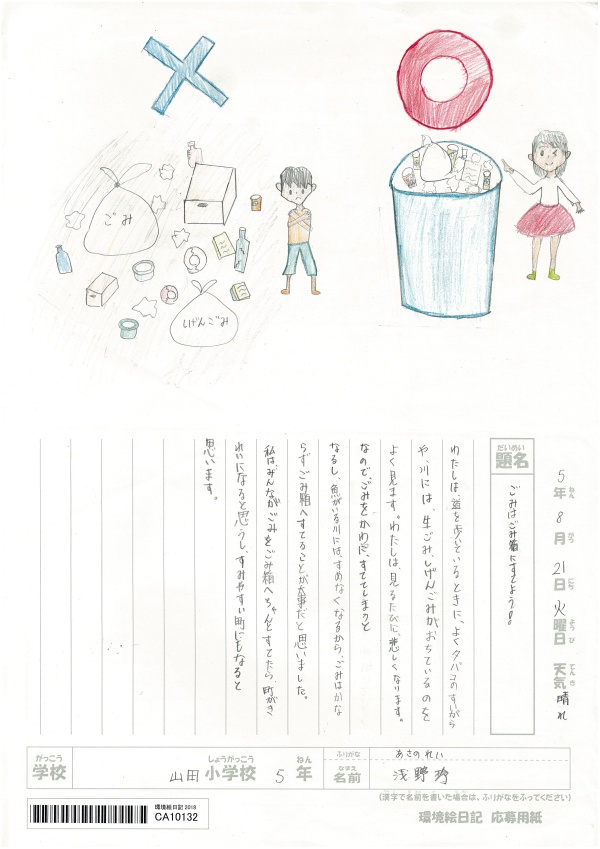 ごみ
しげんごみ
5年 8月 21日 火曜日 天気 晴れ
ねん がつ にち よう び てん き
だいめい
題名
ごみはごみ箱にすてよう!!
わたしは、道を歩いているときに、よくタバコのすいがら
や、川には、生ごみ、しげんごみがおちているのを
よく見ます。わたしは、見るたびに、悲しくなります。
なので、ごみをかわに、すててしまうと
なるし、魚がいる川には、すめなくなるから、ごみはかな
らずごみ箱へすてることが大事だと思いました。
私は、みんながごみをごみ箱へちゃんとすてたら、町がき
れいになると思うし、すみやすい町にもなると
思います。
がっこう しょうがっこう ねん
学校 山田 小学校 5 年
ふりがな あさの れい
なまえ
名前 浅野
(漢字で名前を書いた場合は、ふりがなをふってください)
環境絵日記 2018
CA10132
環境絵日記 応募用紙